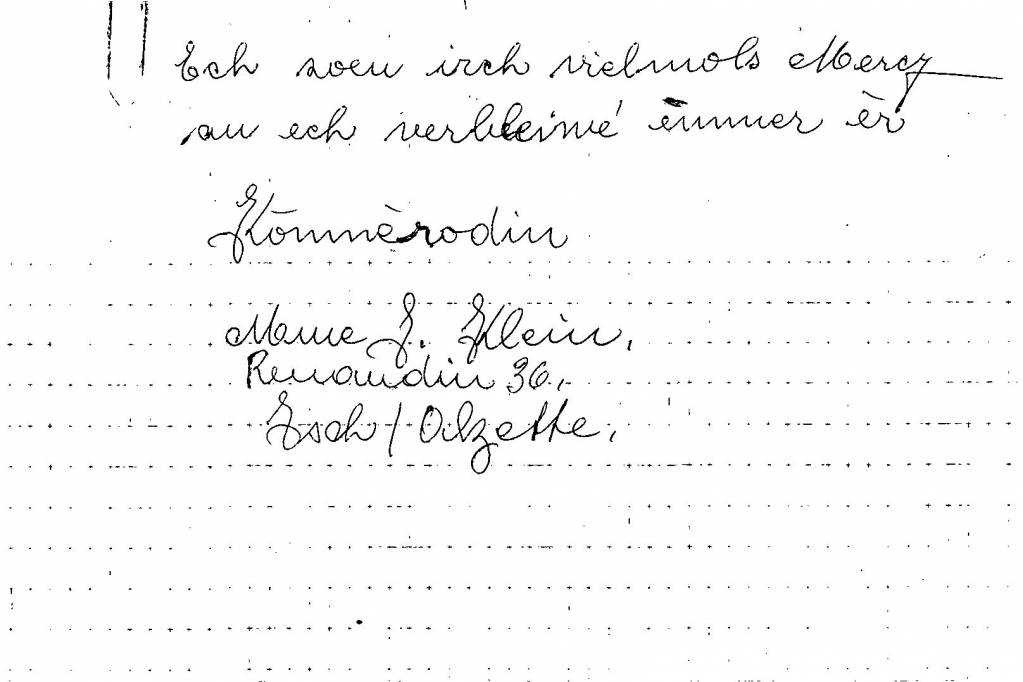 Ech soen irch vielmols Mercy
an ech verbleiwé ëmmer èr
Kömmèrodin
Mme J. Klein,
Renaudin 36,
Esch / Olzette,